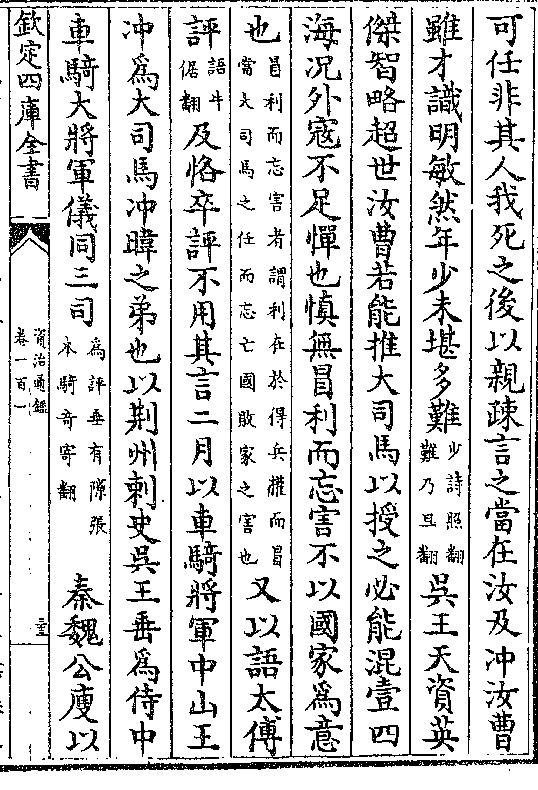 可任非其人我死之後以親疎言之當在汝及冲汝曹
雖才識明敏然年少未堪多難少詩照翻難乃旦翻吳王天資英
傑智略超世汝曹若能推大司馬以授之必能混壹四
海况外寇不足憚也慎無冒利而忘害不以國家為意
也冒利而忘害者謂利在於得兵權而冒當大司馬之任而忘亡國敗家之害也又以語太傅
評語牛倨翻及恪卒評不用其言二月以車騎將軍中山王
冲為大司馬冲暐之弟也以荆州刺史吳王垂為侍中
車騎大將軍儀同三司為評垂有隙張本騎奇寄翻秦魏公廋以
欽定四庫全書
資治通鑑
卷一百一